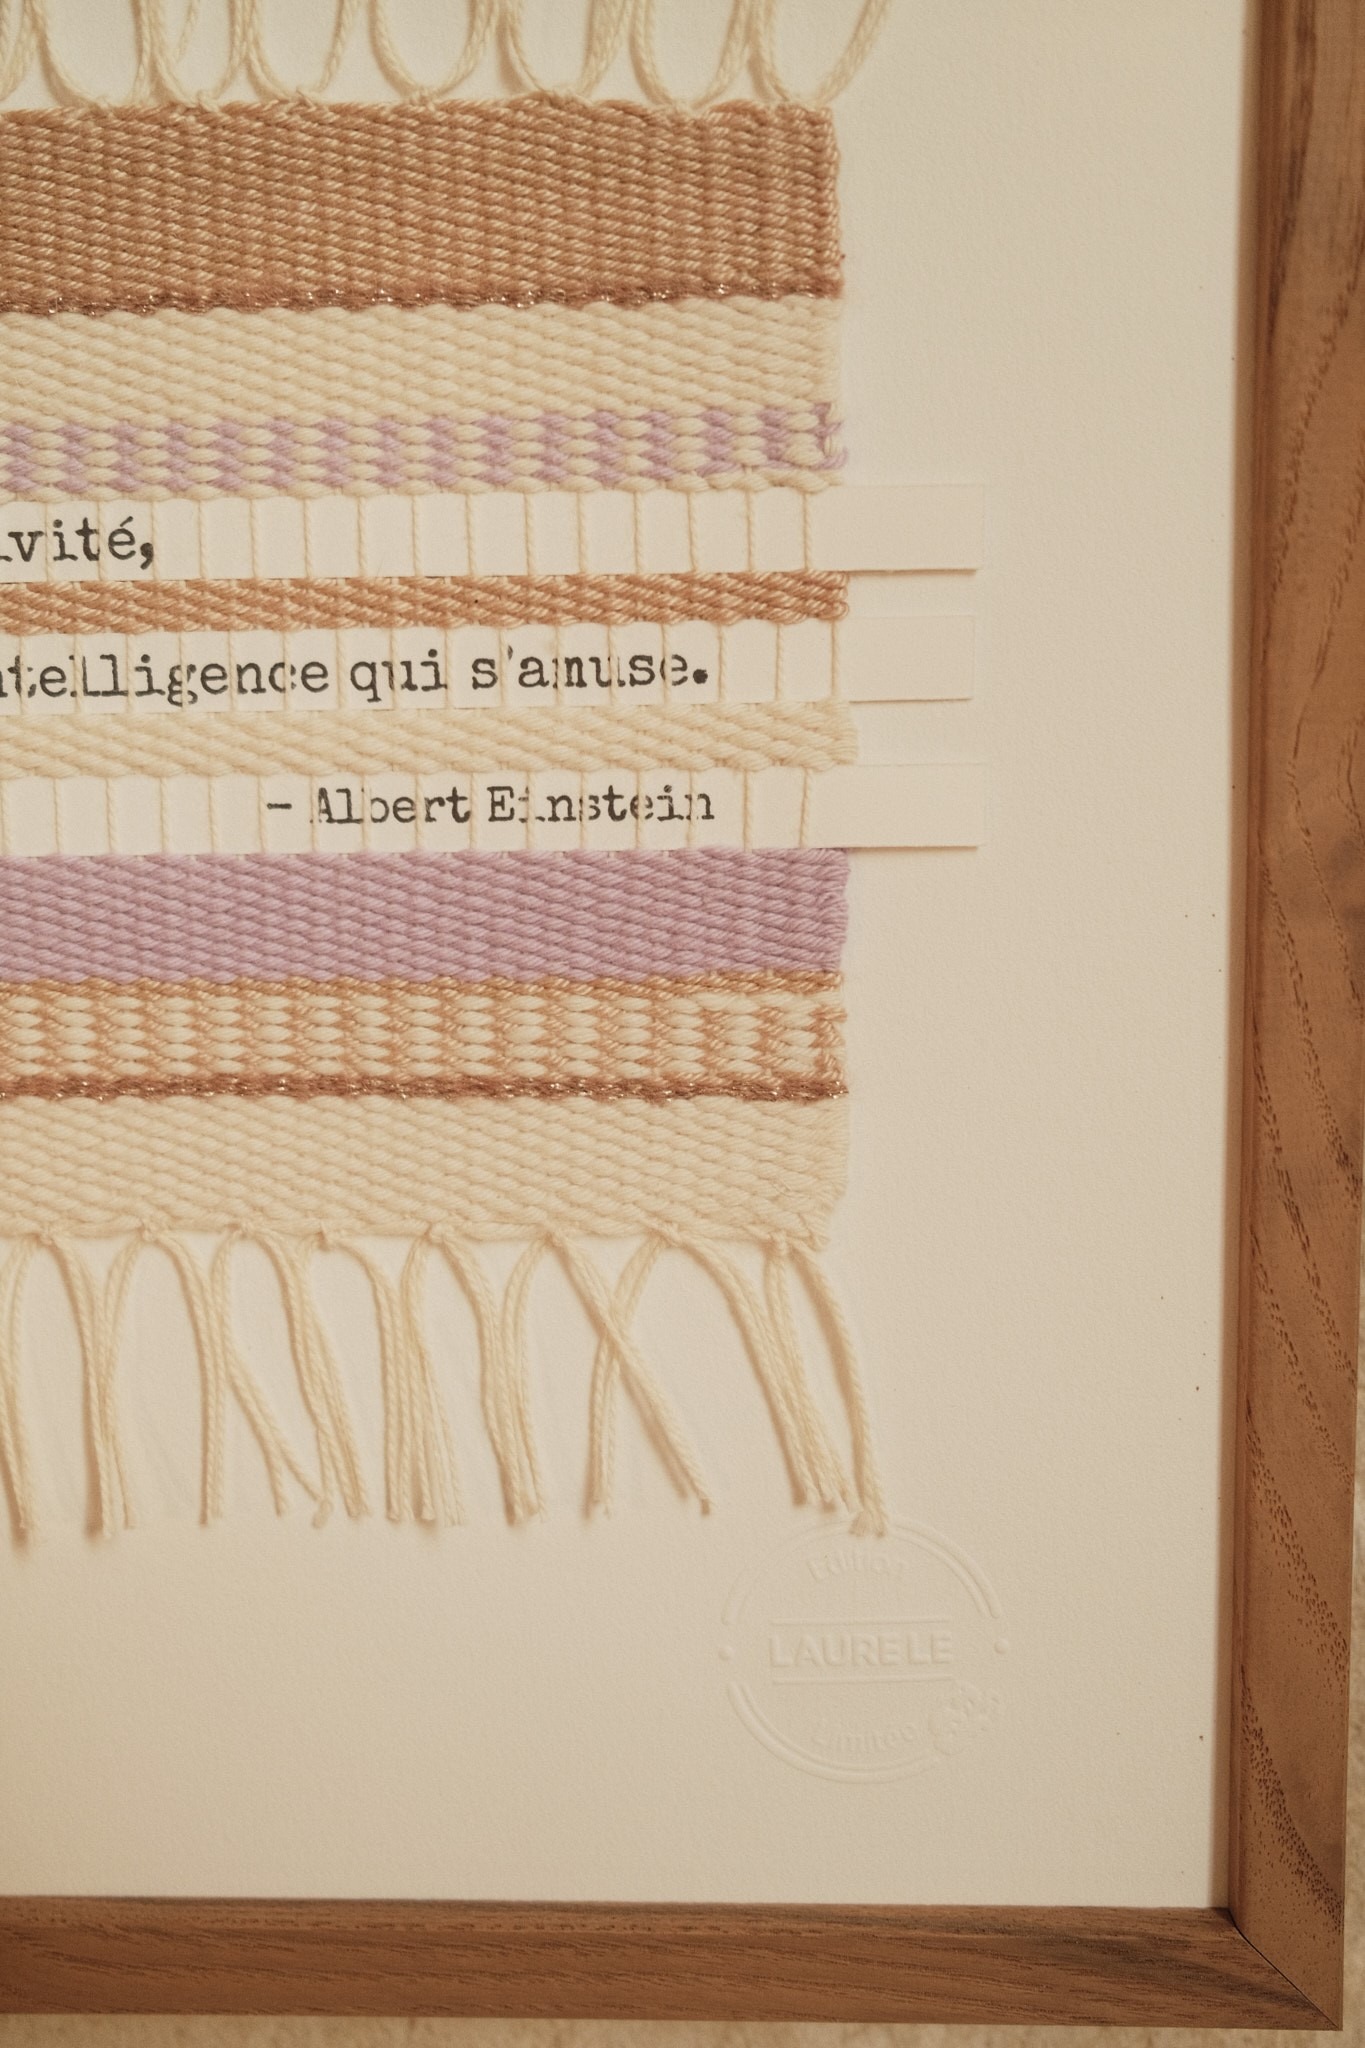 ivité,
ntelligence qui s'amuse.
– Albert Einstein
Édition
LAURELE
Limitée